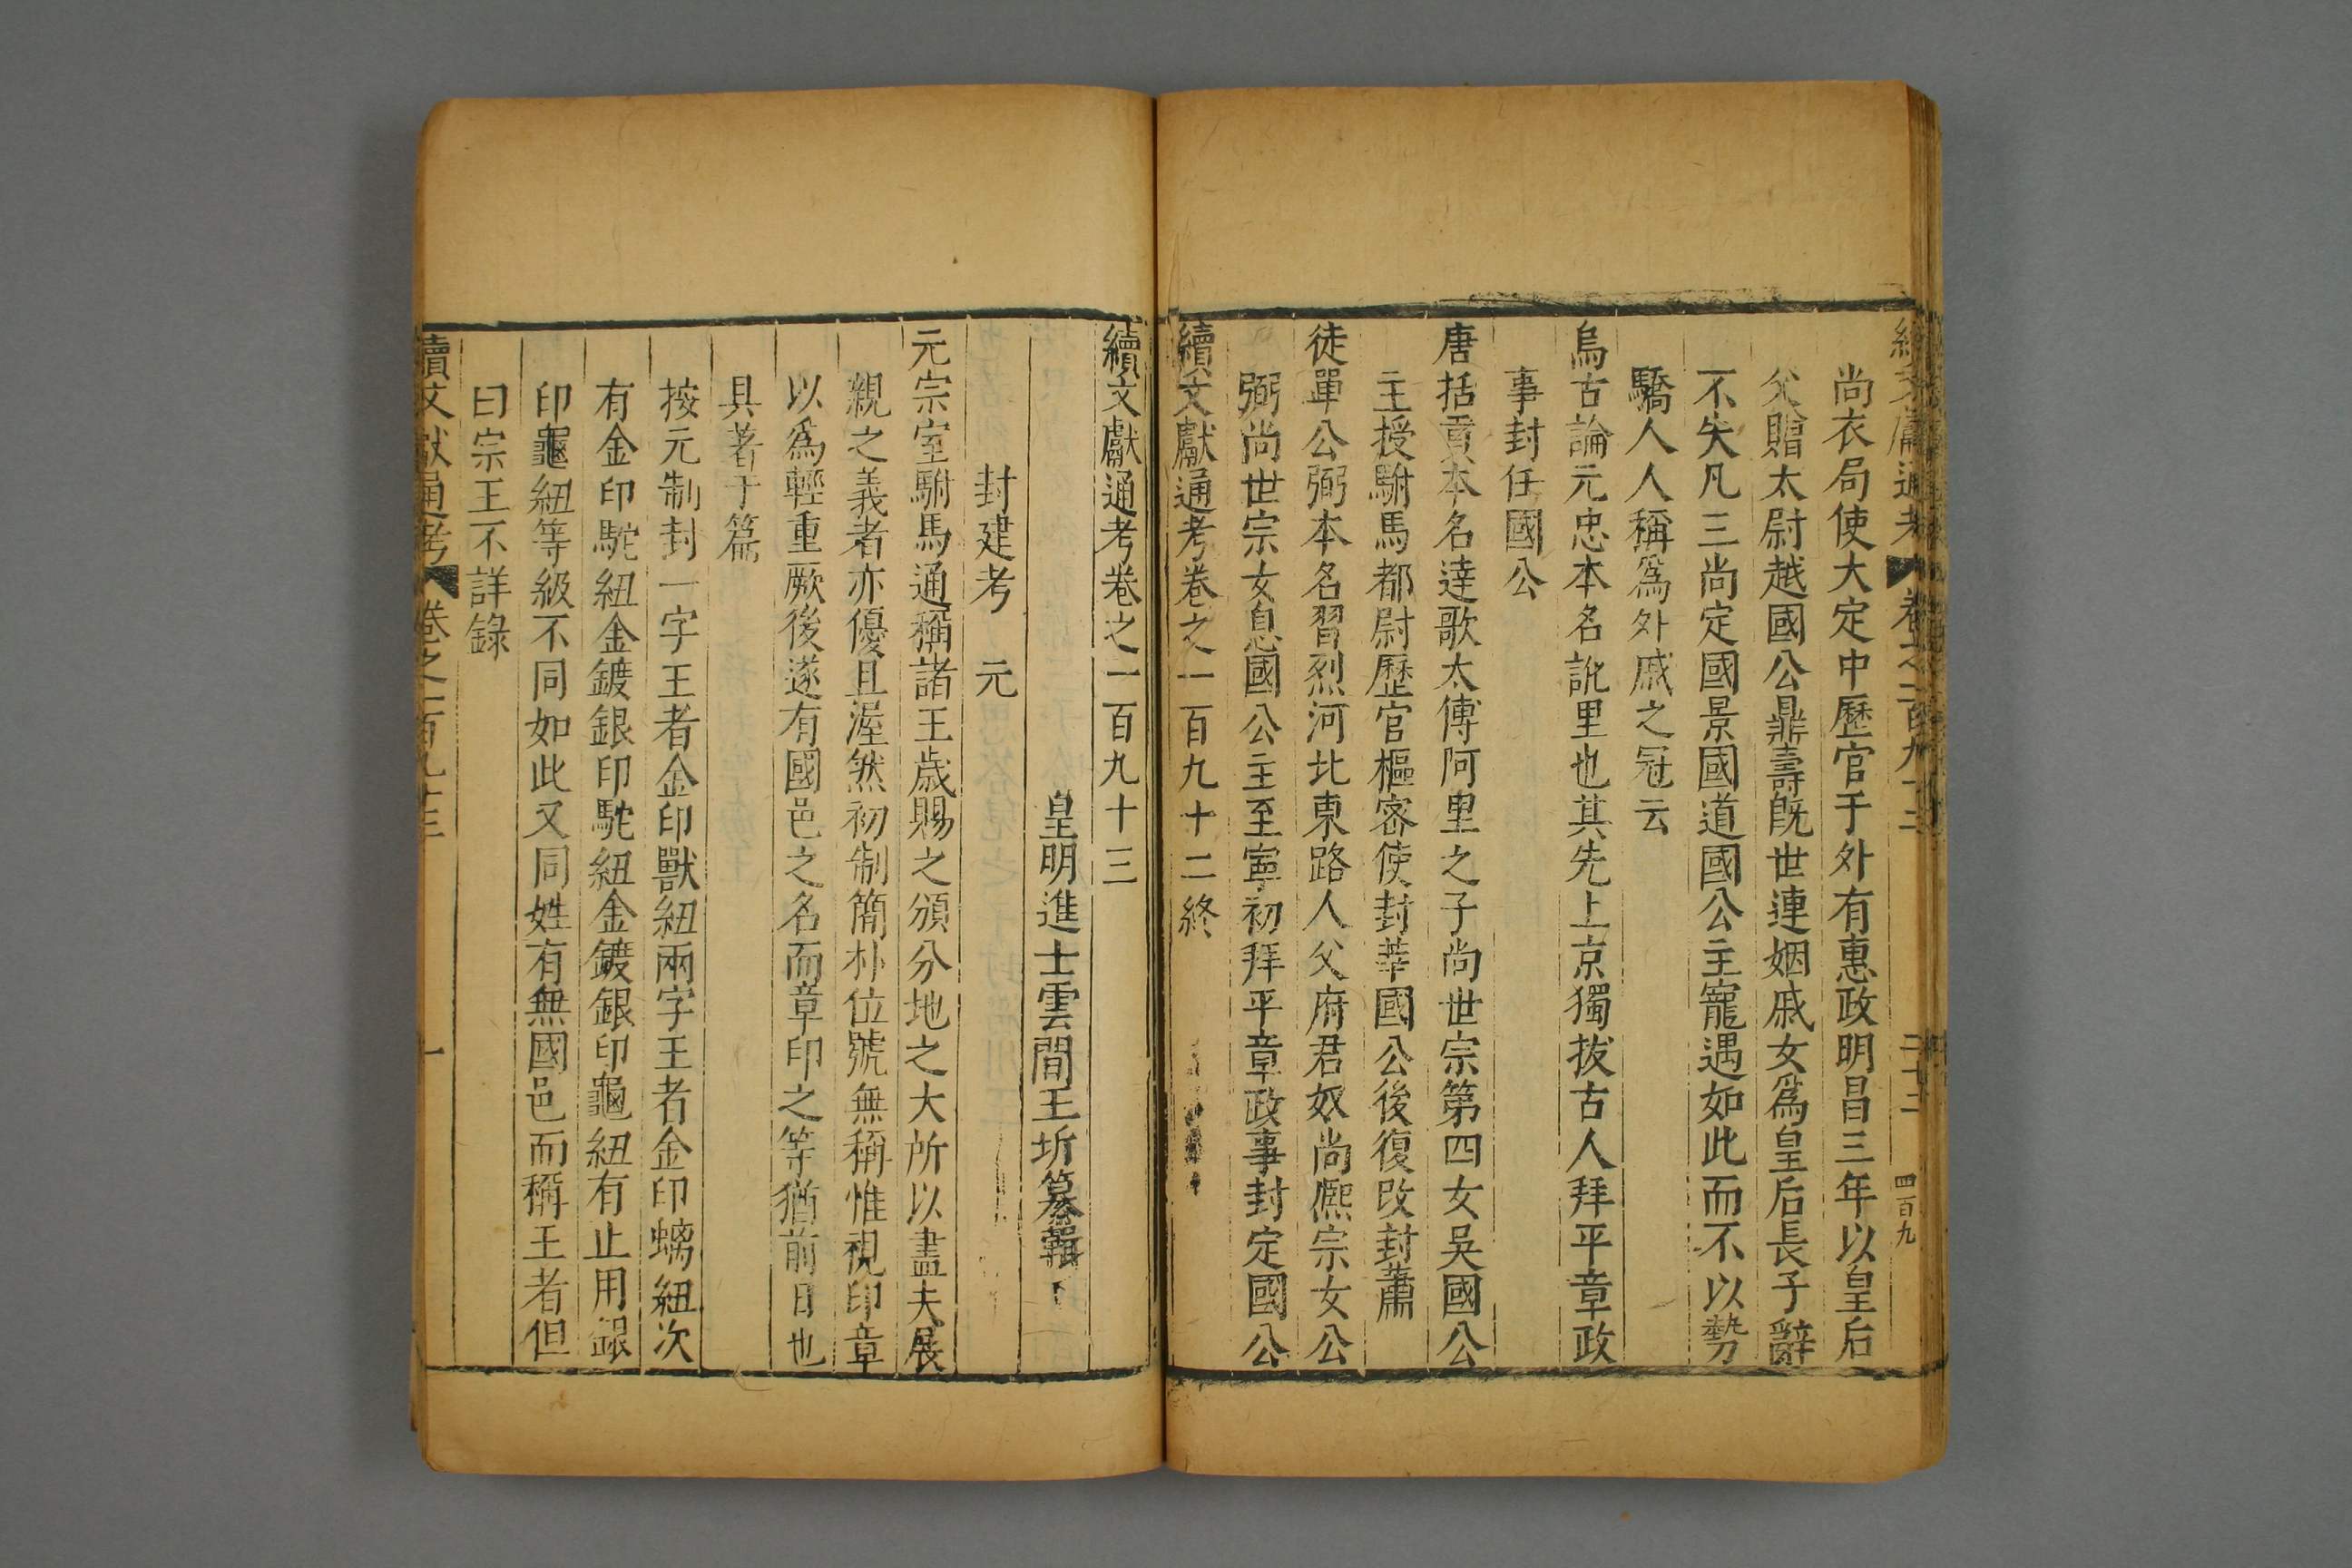 續文獻通考 卷之一百九十二 二十二 四百九
尚衣局使大定中歷官于外有惠政明昌三年以皇后
父贈太尉越國公鼎壽旣世連姻戚女爲皇后長子辭
不失凡三尚定國景國道國公主寵遇如此而不以勢
驕人人稱爲外戚之冠云
烏古論元忠本名訛里也其先上京獨拔古人拜平章政
事封任國公
唐括貢本名達歌太傅阿里之子尚世宗第四女吳國公
主授駙馬都尉歷官樞密使封莘國公後復改封蕭
徒單公弼本名習烈河北東路人父府君奴尚熈宗女公
弼尚世宗女息國公主至寧初拜平章政事封定國公
續文獻通考卷之一百九十二終
續文獻通考卷之一百九十三
皇明進士雲間王圻纂輯
封建考 元
元宗室駙馬通稱諸王歲賜之頒分地之大所以盡夫展
親之義者亦優且渥然初制簡朴位號無稱惟視印章
以爲輕重厥後遂有國邑之名而章印之等猶前日也
具著于篇
按元制封一字王者金印獸紐兩字王者金印螭紐次
有金印駝紐金鍍銀印駝紐金鍍銀印龜紐有止用銀
印龜紐等級不同如此又同姓有無國邑而稱王者但
曰宗王不詳錄
續文獻通考 卷之一百九十三 一